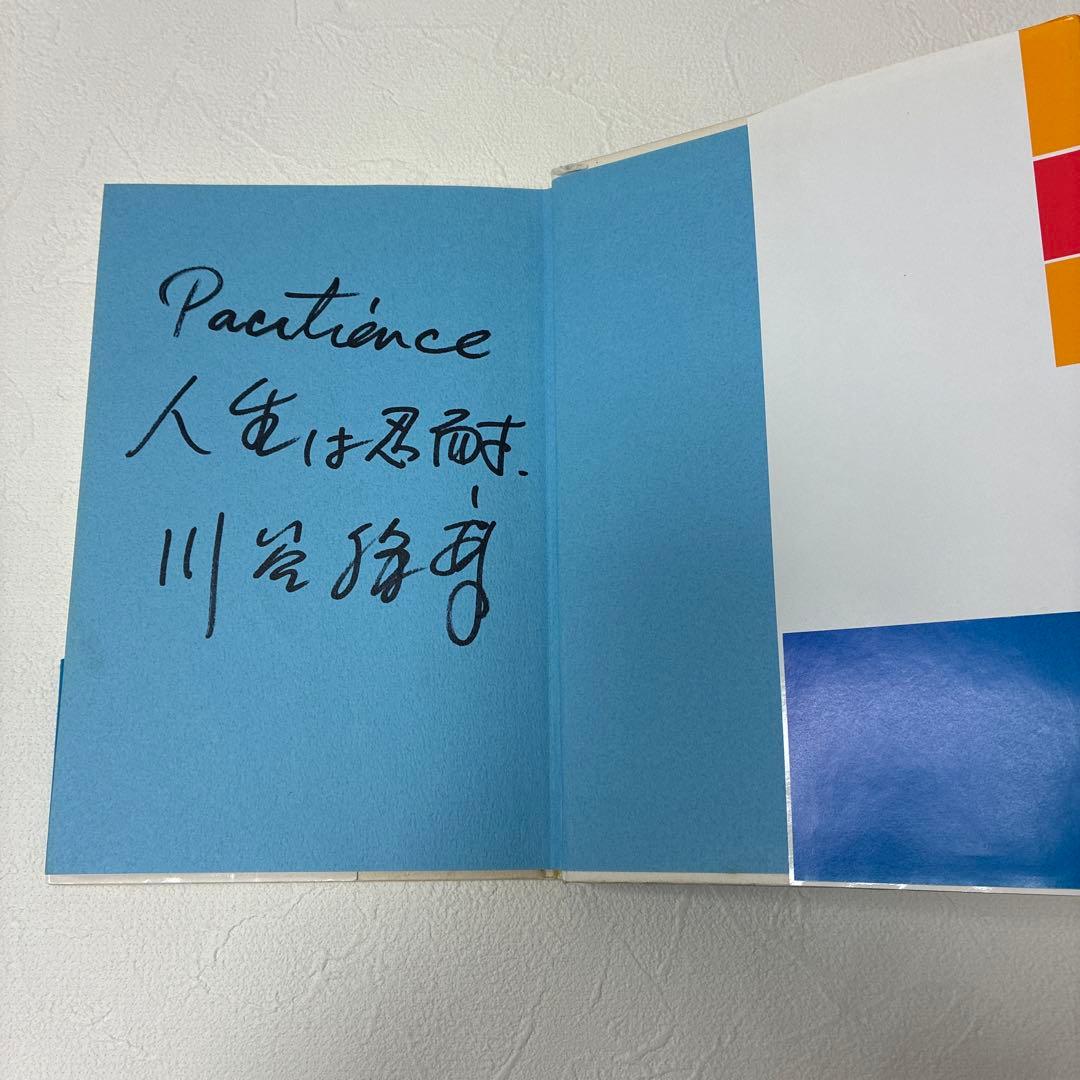 Pacitience
人生は忍耐.
川谷